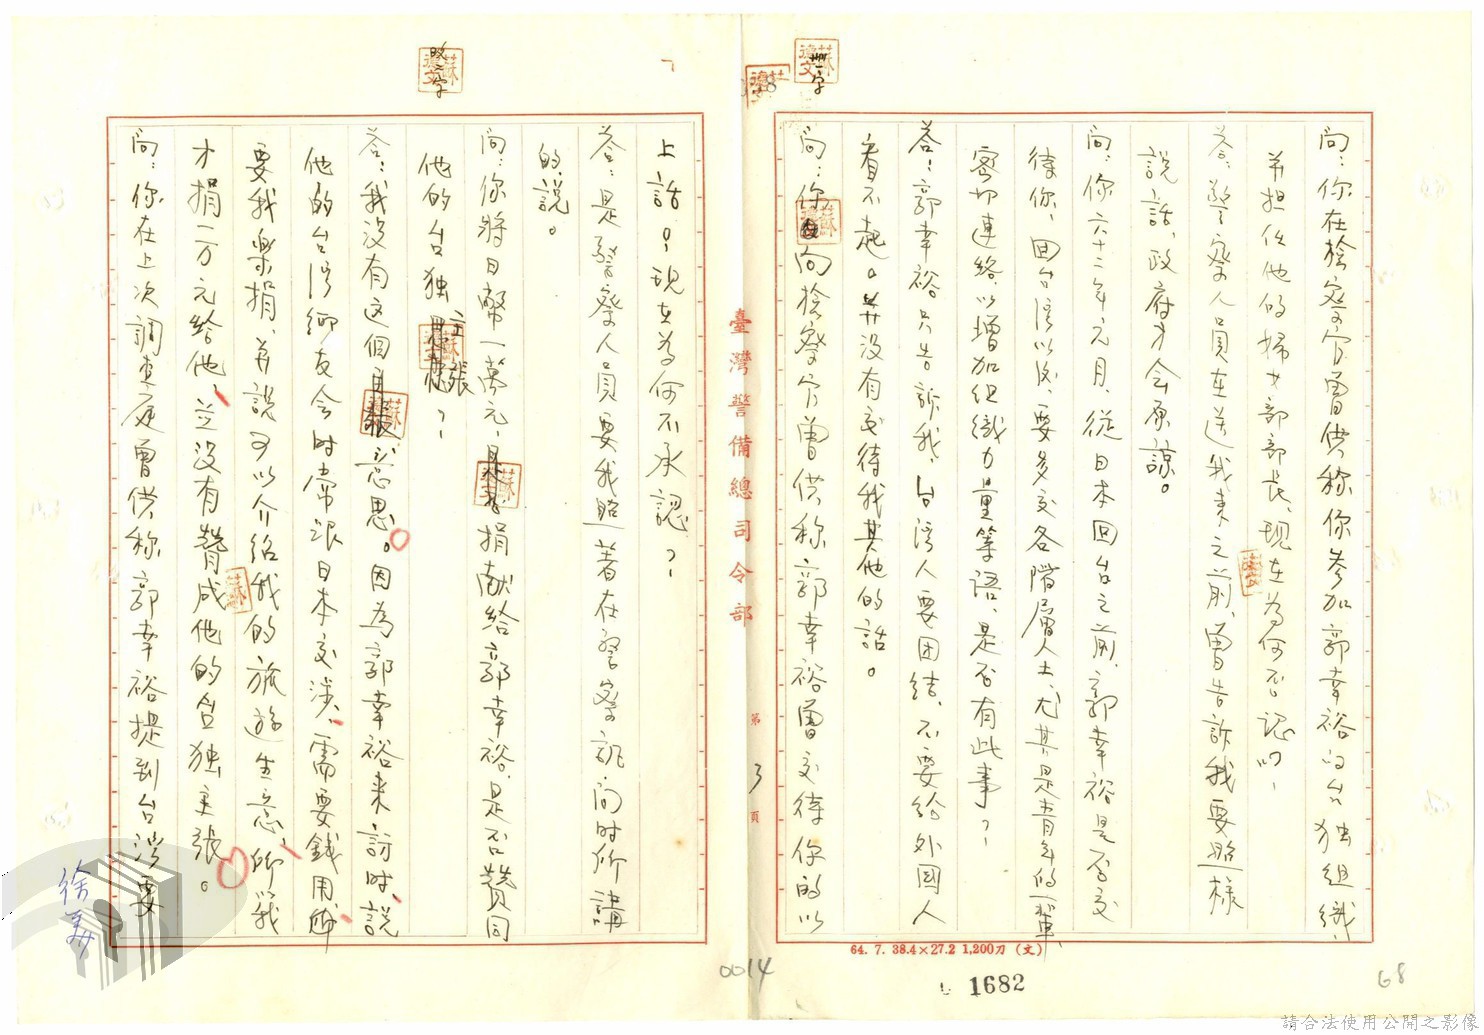 問：你在檢察官曾供称你参加郭幸裕的台独組織，
并担任他的婦女部部長、現在為何否認啊？
答：警察人員在送我来之前，曾告訴我要照樣
說話，政府才会原諒。
問：你六十二年元月，從日本回台之前，郭幸裕是否交
待你，回台湾以後，要多交各階層人士，尤其是青年的一輩，
密切連絡，以增加組織力量等語，是否有此事？
答：郭幸裕只告訴我，台湾人要团結，不要給外國人
看不起。并没有交待我其他的話。
問：你向檢察官曾供称，郭幸裕曾交待你的以
臺灣警備總司令部
第3頁
上話。，現在為何不承認？
答：是警察人員要我照著在警察訊問时所講
的說。
問：你將日幣一萬元，捐献給郭幸裕，是否赞同
他的台独主張？
答：我没有这個意思。因為郭幸裕来訪时，說
他的台湾鄉友会时常跟日本交涉，需要錢用，所
要我樂捐，并說可以介紹我的旅遊生意，所以我
才捐一万元給他，並没有贊成他的台独主張。
問：你在上次調查庭曾供称郭幸裕提到台湾要
64. 7. 38.4×27.2 1,200刀 (文)
0014
1682
68
請合法使用公開之影像